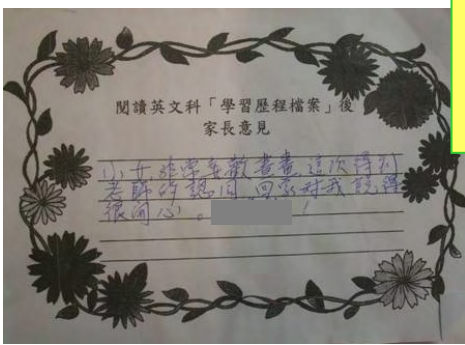 閱讀英文科「學習歷程檔案」後
家長意見
小女非常喜歡畫畫這次得到
老師的認同,回家對我說得
很開心。!